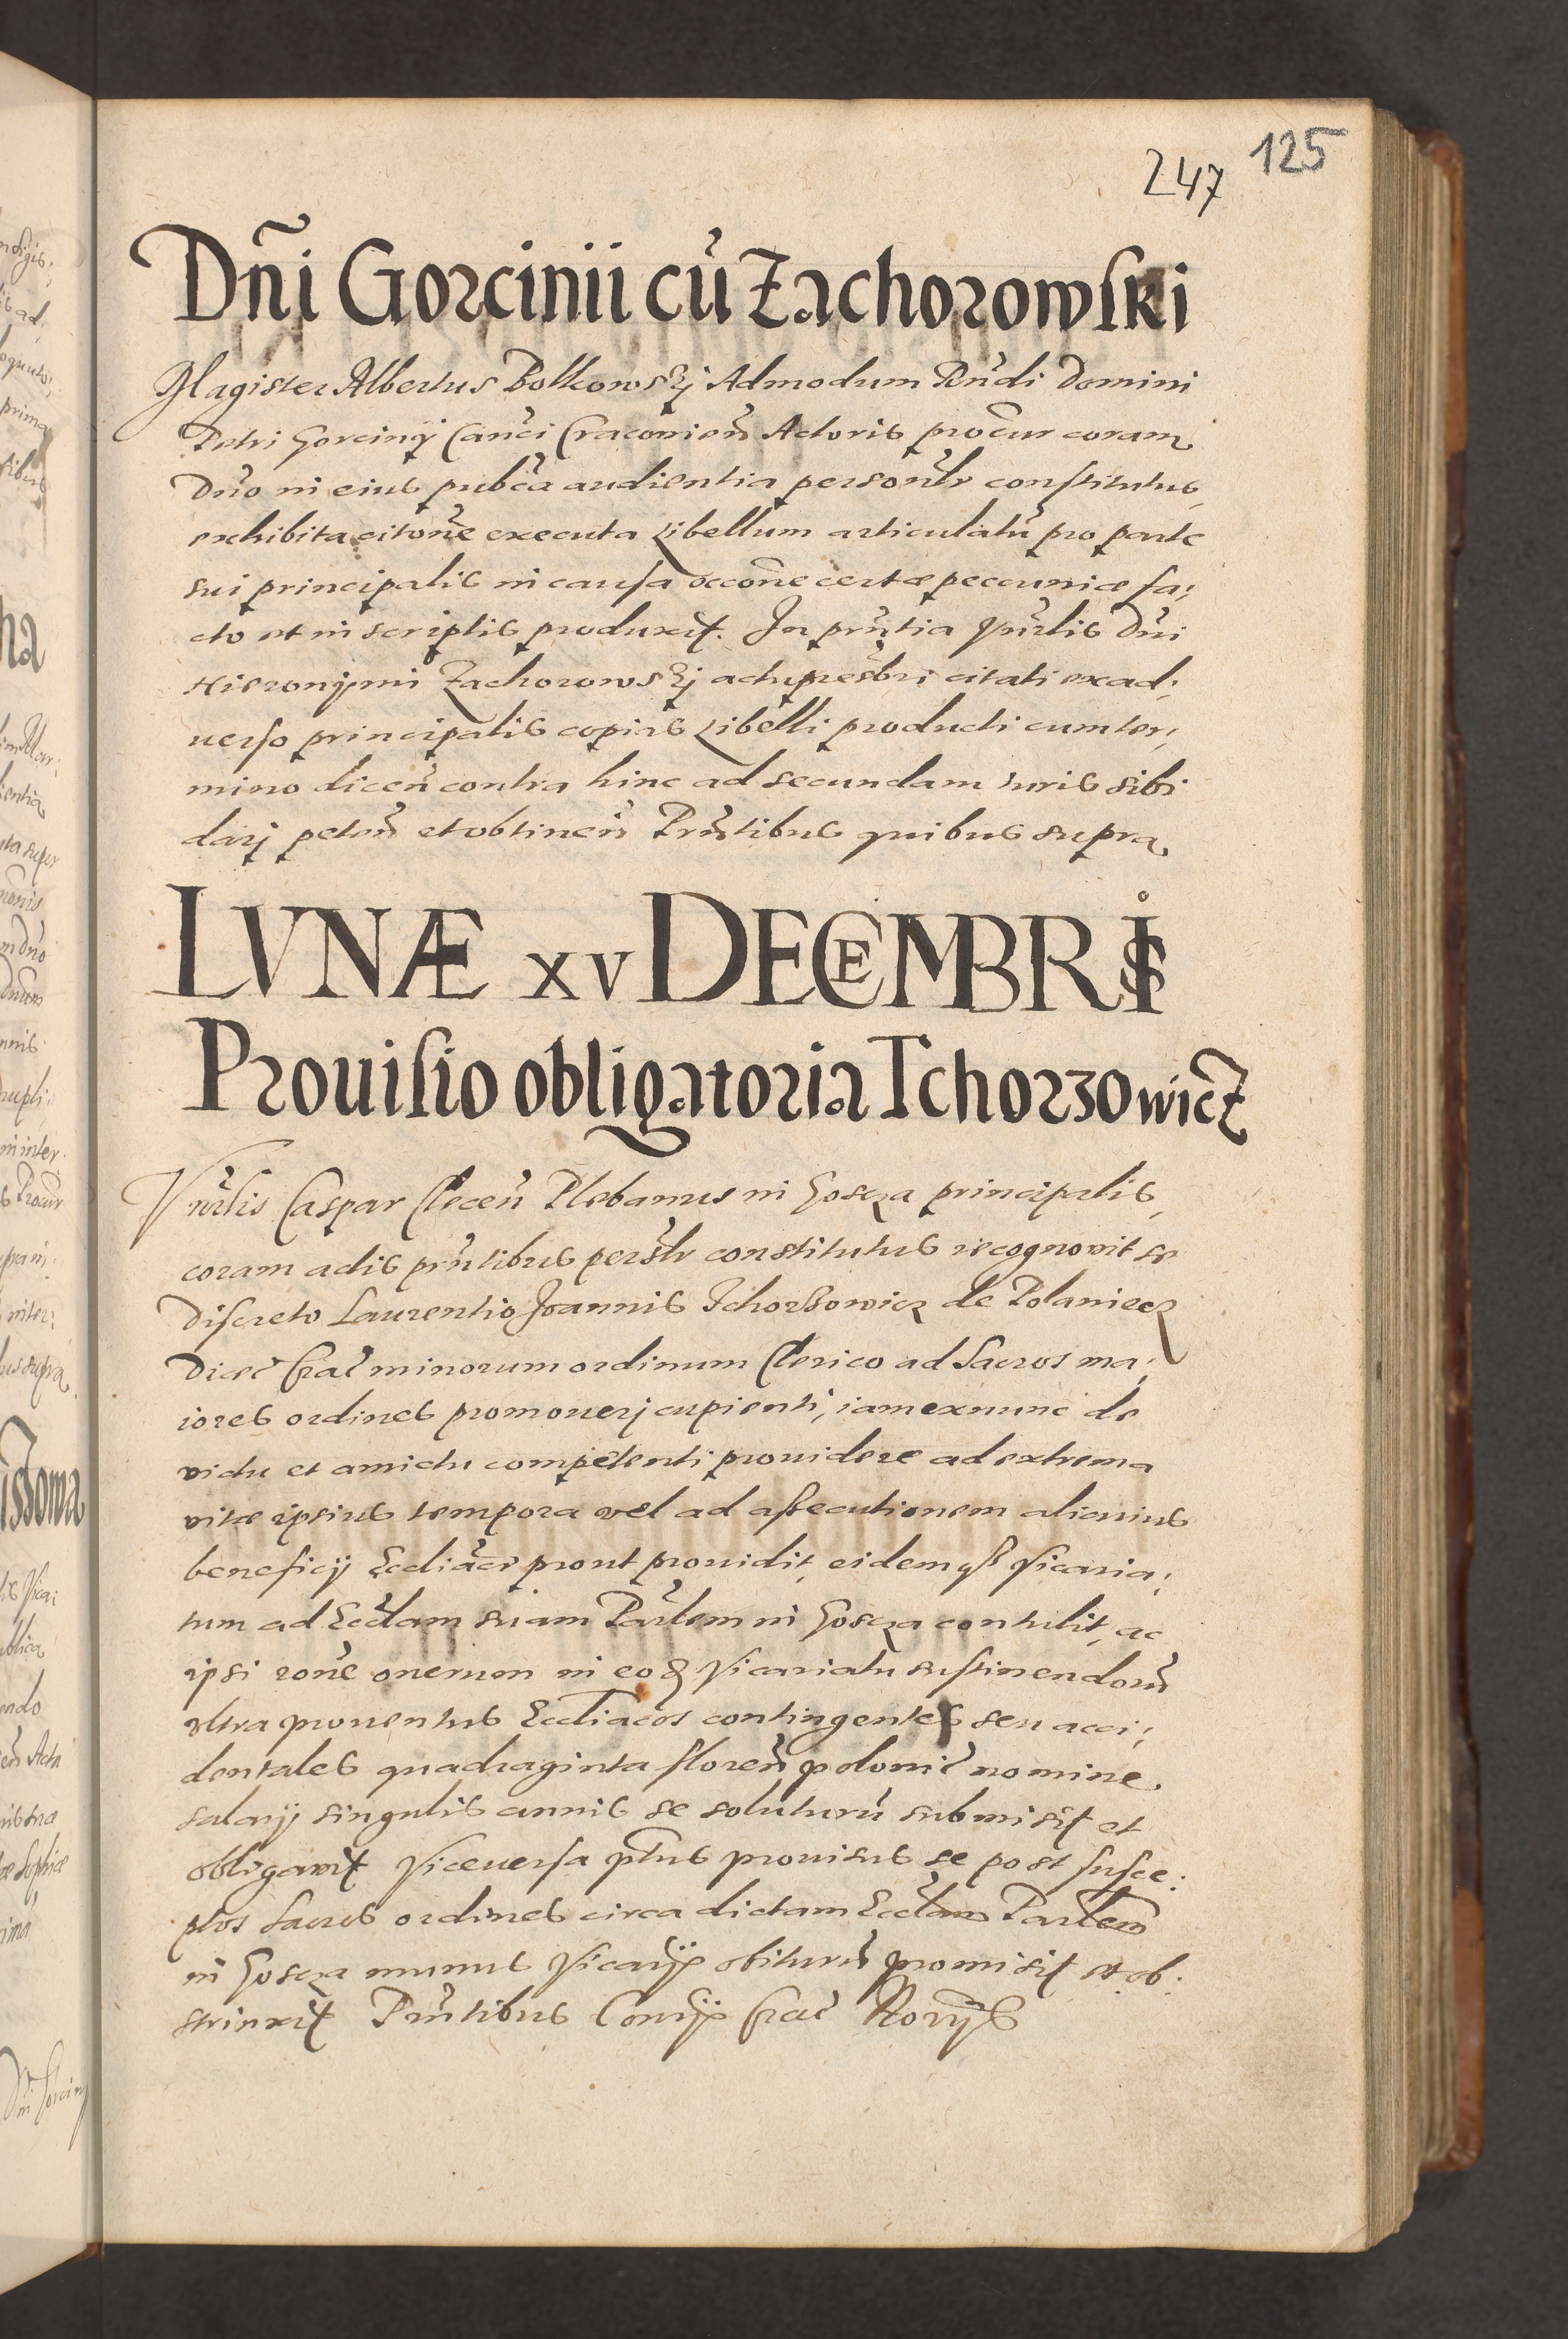 247 125
Dn̄i Gorcinii cū Zachorowski
Magister Albertus Bolkowskj Admodum Rn̄di Domini
Petri Gorcinij Can̄ci Cracouien̄ Actoris procur̄ coram
Dn̄o in eius pub̄ca audientia person̄lr constitutus,
exhibita citon̄e executa Libellum articulatū pro parte
sui principalis in causa occon̄e certæ peccuniæ fa,
cto et in scriptis produxit. In prn̄tia Vn̄rlis Dn̄i
Hieronÿmi Zachorowskj actu presb̄ri citati ex ad,
uerso principalis copias Libelli producti cum ter,
mino dicen̄ contra hinc ad secundam iuris sibi
darj peten̄ et obtinen̄ Prn̄tibus quibus supra
LVNÆ XV DECEMBRIS
Prouisio obligatoria Tchorzowicz
Vn̄rlis Caspar Clecen̄ Plebanus in Goscza principalis,
coram actis prn̄tibus pers̄lr constitutus recognouit se
Discreto Laurentio Joannis Tchorzowicz de Polaniecz
Diæc̄ Crac̄ minorum ordinum Clerico ad Sacros ma,
iores ordines promouerj cupienti, iam ex nunc de
victu et amictu competenti prouidere ad extrema
vitæ ipsius tempora vel ad assecutionem alicuius
beneficij Eccliāci prout prouidit, eidemqꝫ Vicaria,
tum ad Eccl̄am suam Par̄lem in Goscza contulit, ac
ipsi ron̄e onerum in eoꝺ Vicariatu sustinendorū
vltra prouentus Eccliācos contingentes seu acci,
dentales quadraginta floren̄ polonic̄ nomine
salarij singulis annis se soluturū submisit et
obligauit Viceuersa p̄tus prouisus se post susce,
ptos Sacros ordines circa dictam Eccl̄am Par̄lem
in Goscza munus Vicarij obiturū promisit et ob,
strinxit Prn̄tibus Consÿ Crac̄ Norijs